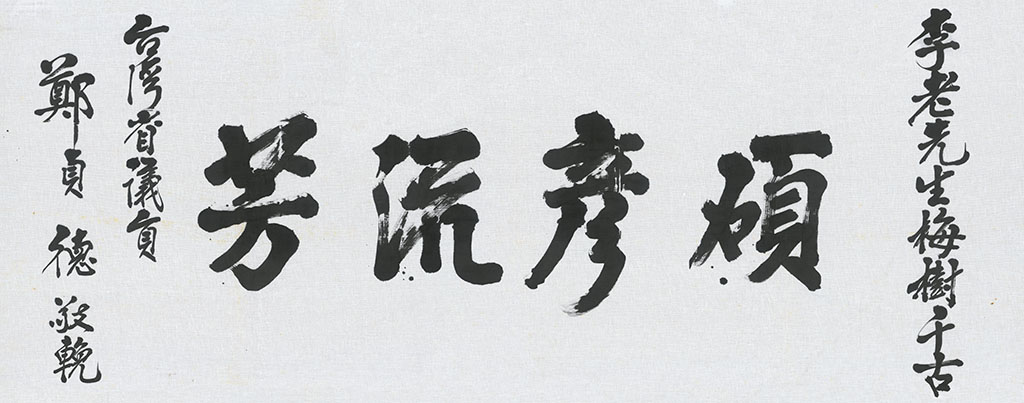 李老先生梅樹千古
碩彥流芳
台灣省議員
鄭貞德敬輓